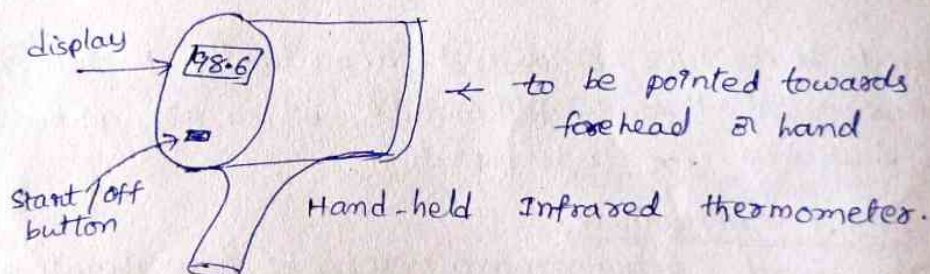 display
98.6
← to be pointed towards
forehead or hand
Start/off
button
Hand-held Infrared thermometer.